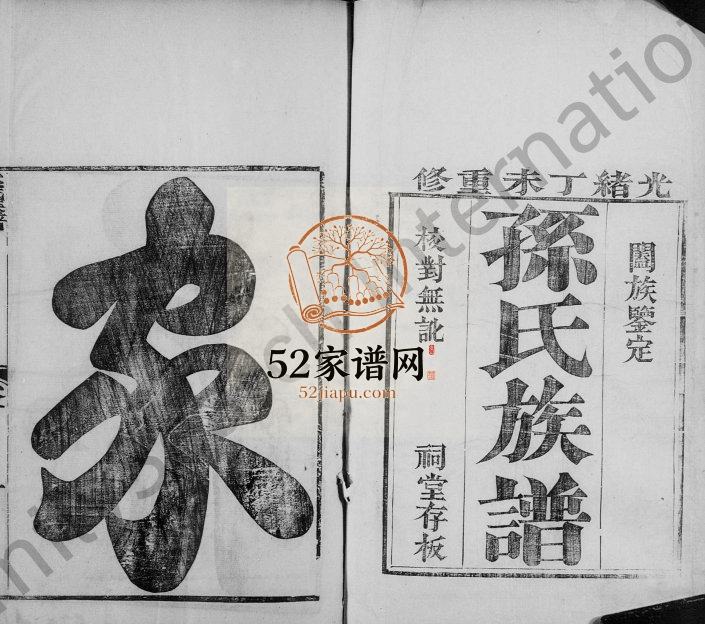 光緒丁未重修
闔族鑒定
孫氏族譜
校對無訛
祠堂存板
52家谱网
52jiapu.com